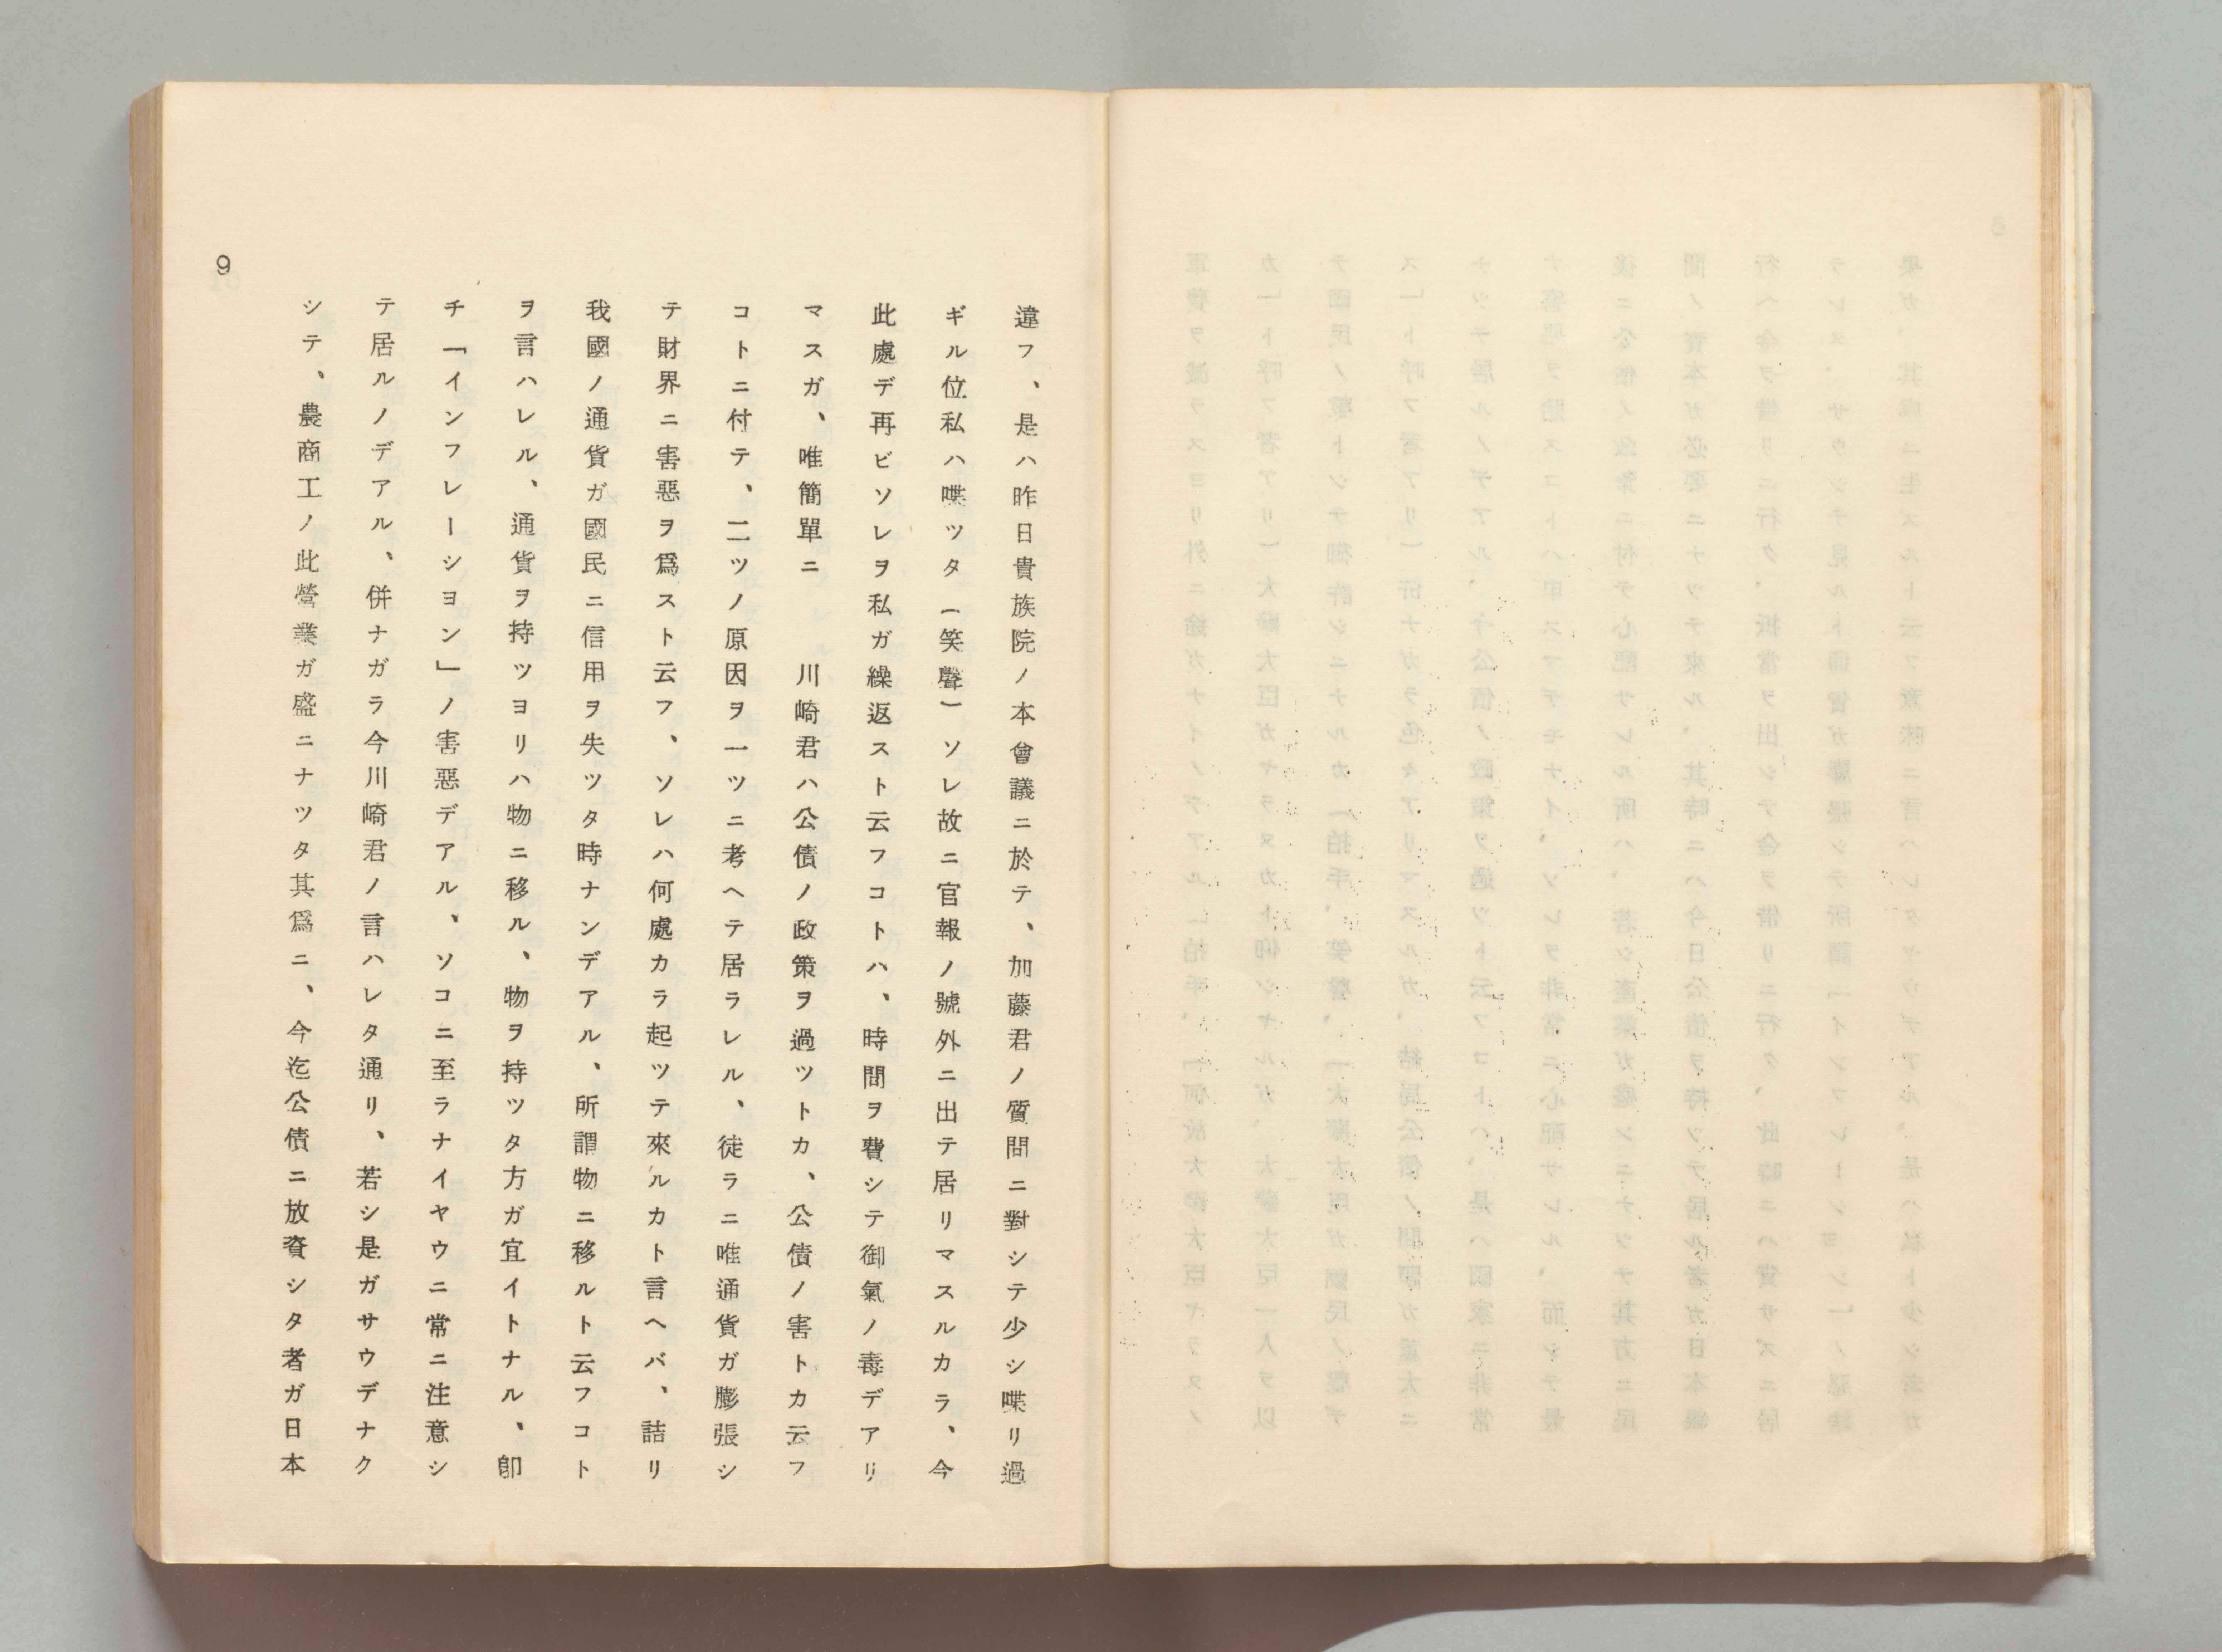 違フ、是ハ昨日貴族院ノ本會議ニ於テ、加藤君ノ質問ニ對シテ少シ喋リ過
ギル位私ハ喋ツタ（笑聲）ソレ故ニ官報ノ號外ニ出テ居リマスルカラ、今
此處デ再ビソレヲ私ガ繰返スト云フコトハ、時間ヲ費シテ御氣ノ毒デアリ
マスガ、唯簡單ニ　　川崎君ハ公債ノ政策ヲ過ツトカ、公債ノ害トカ云フ
コトニ付テ、二ツノ原因ヲ一ツニ考ヘテ居ラレル、徒ラニ唯通貨ガ膨張シ
テ財界ニ害惡ヲ爲スト云フ、ソレハ何處カラ起ツテ來ルカト言ヘバ、詰リ
我國ノ通貨ガ國民ニ信用ヲ失ツタ時ナンデアル、所謂物ニ移ルト云フコト
ヲ言ハレル、通貨ヲ持ツヨリハ物ニ移ル、物ヲ持ツタ方ガ宜イトナル、卽
チ「インフレーシヨン」ノ害惡デアル、ソコニ至ラナイヤウニ常ニ注意シ
テ居ルノデアル、併ナガラ今川崎君ノ言ハレタ通リ、若シ是ガサウデナク
シテ、農商工ノ此營業ガ盛ニナツタ其爲ニ、今迄公債ニ放資シタ者ガ日本
9